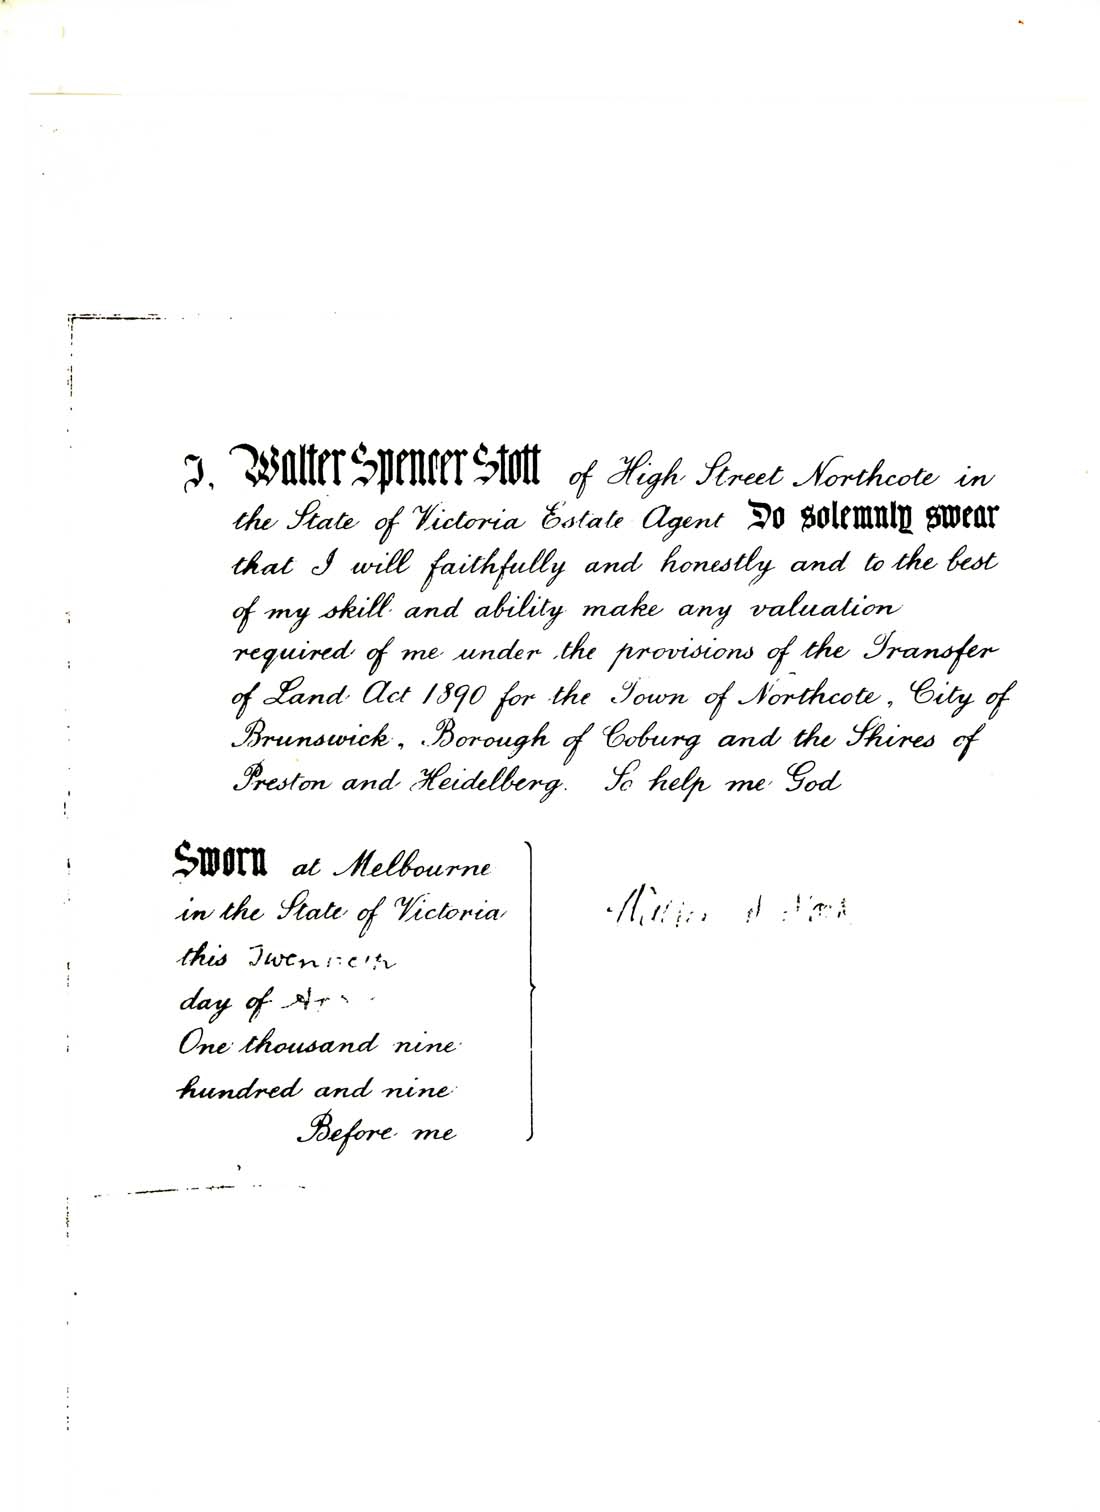 I, Walter Spencer Stott of High Street Northcote in
the State of Victoria Estate Agent Do solemnly swear
that I will faithfully and honestly and to the best
of my skill and ability make any valuation
required of me under the provisions of the Transfer
of Land Act 1890 for the Town of Northcote, City of
Brunswick, Borough of Coburg and the Shires of
Preston and Heidelberg. So help me God
Sworn at Melbourne
in the State of Victoria
this Twentieth
day of
One thousand nine
hundred and nine
Before me